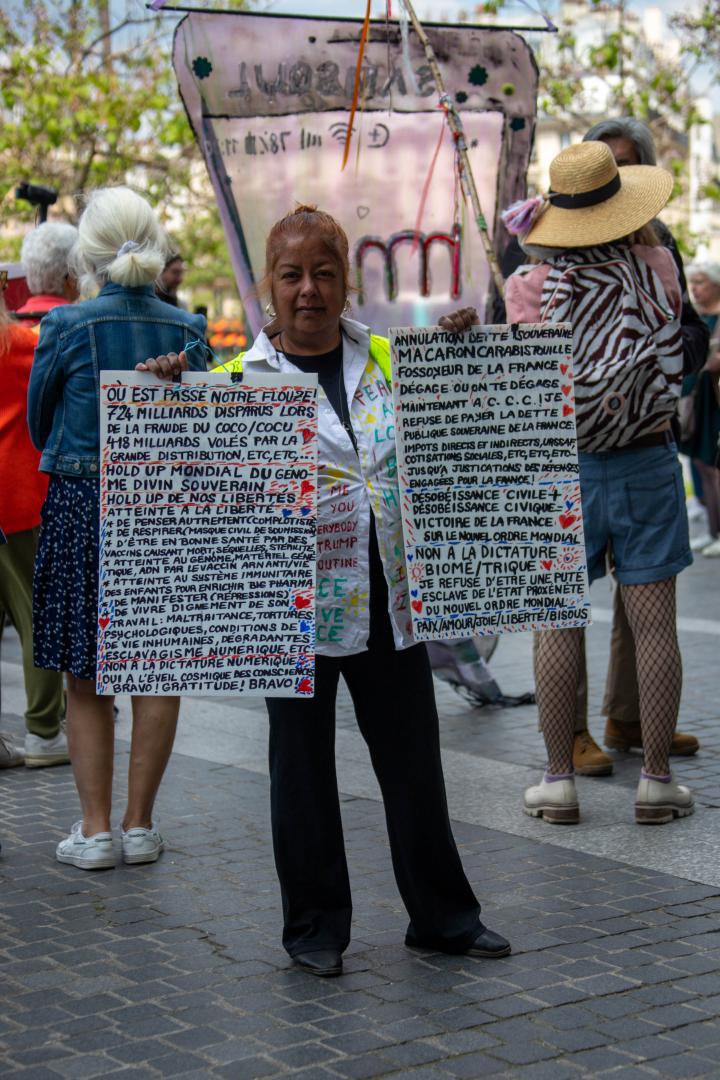 78%
OÙ EST PASSÉ NOTRE FLOUZE!
724 MILLIARDS DISPARUS LORS
DE LA FRAUDE DU COCO/COCU
418 MILLIARDS VOLÉS PAR LA
GRANDE DISTRIBUTION, ETC, ETC...
HOLD UP MONDIAL DU GENO-
ME DIVIN SOUVERAIN
HOLD UP DE NOS LIBERTÉS
ATTEINTE À LA LIBERTÉ
* DE PENSER AUTREMENT (COMPLOTISTE)
* DE RESPIRER (MASQUE CIVIL DE SOUMISSION)
* D'ÊTRE EN BONNE SANTÉ PAR DES
VACCINS CAUSANT MORT, SÉQUELLES, STÉRILITÉ
* ATTEINTE AU GÉNOME, MATÉRIEL GÉNÉ
TIQUE, ADN PAR LE VACCIN ARN ANTI/VIE
* ATTEINTE AU SYSTÈME IMMUNITAIRE
DES ENFANTS POUR ENRICHIR BIG PHARMA
* DE MANIFESTER (RÉPRESSIONS)
* DE VIVRE DIGNEMENT DE SON
TRAVAIL: MALTRAITANCE, TORTURES
PSYCHOLOGIQUES, CONDITIONS DE
VIE INHUMAINES, DÉGRADANTES
ESCLAVAGISME NUMÉRIQUE ETC
NON À LA DICTATURE NUMÉRIQUE
OUI À L'ÉVEIL COSMIQUE DES CONSCIENCES
BRAVO! GRATITUDE! BRAVO!
ME
YOU
EVERYBODY
TRUMP
ANNULATION DETTE! SOUVERAINE
MACARONCARABISTOUILLE
FOSSOYEUR DE LA FRANCE
DÉGAGE OU ON TE DÉGAGE
MAINTENANT! C.C.C.! JE
REFUSE DE PAYER LA DETTE
PUBLIQUE SOUVERAINE DE FRANCE:
IMPOTS DIRECTS ET INDIRECTS, URSSAF,
COTISATIONS SOCIALES, ETC, ETC, ETC-
JUSQU'À JUSTICATIONS DES DEPENSES
ENGAGÉES POUR LA FRANCE!
DÉSOBÉISSANCE CIVILE+
DÉSOBÉISSANCE CIVIQUE=
VICTOIRE DE LA FRANCE
SUR LE NOUVEL ORDRE MONDIAL
NON À LA DICTATURE
BIOMÉ/TRIQUE
JE REFUSE D'ÊTRE UNE PUTE
ESCLAVE DE L'ETAT PROXÉNETE
DU NOUVEL ORDRE MONDIAL
PAIX/AMOUR/JOIE/LIBERTÉ/BISOUS